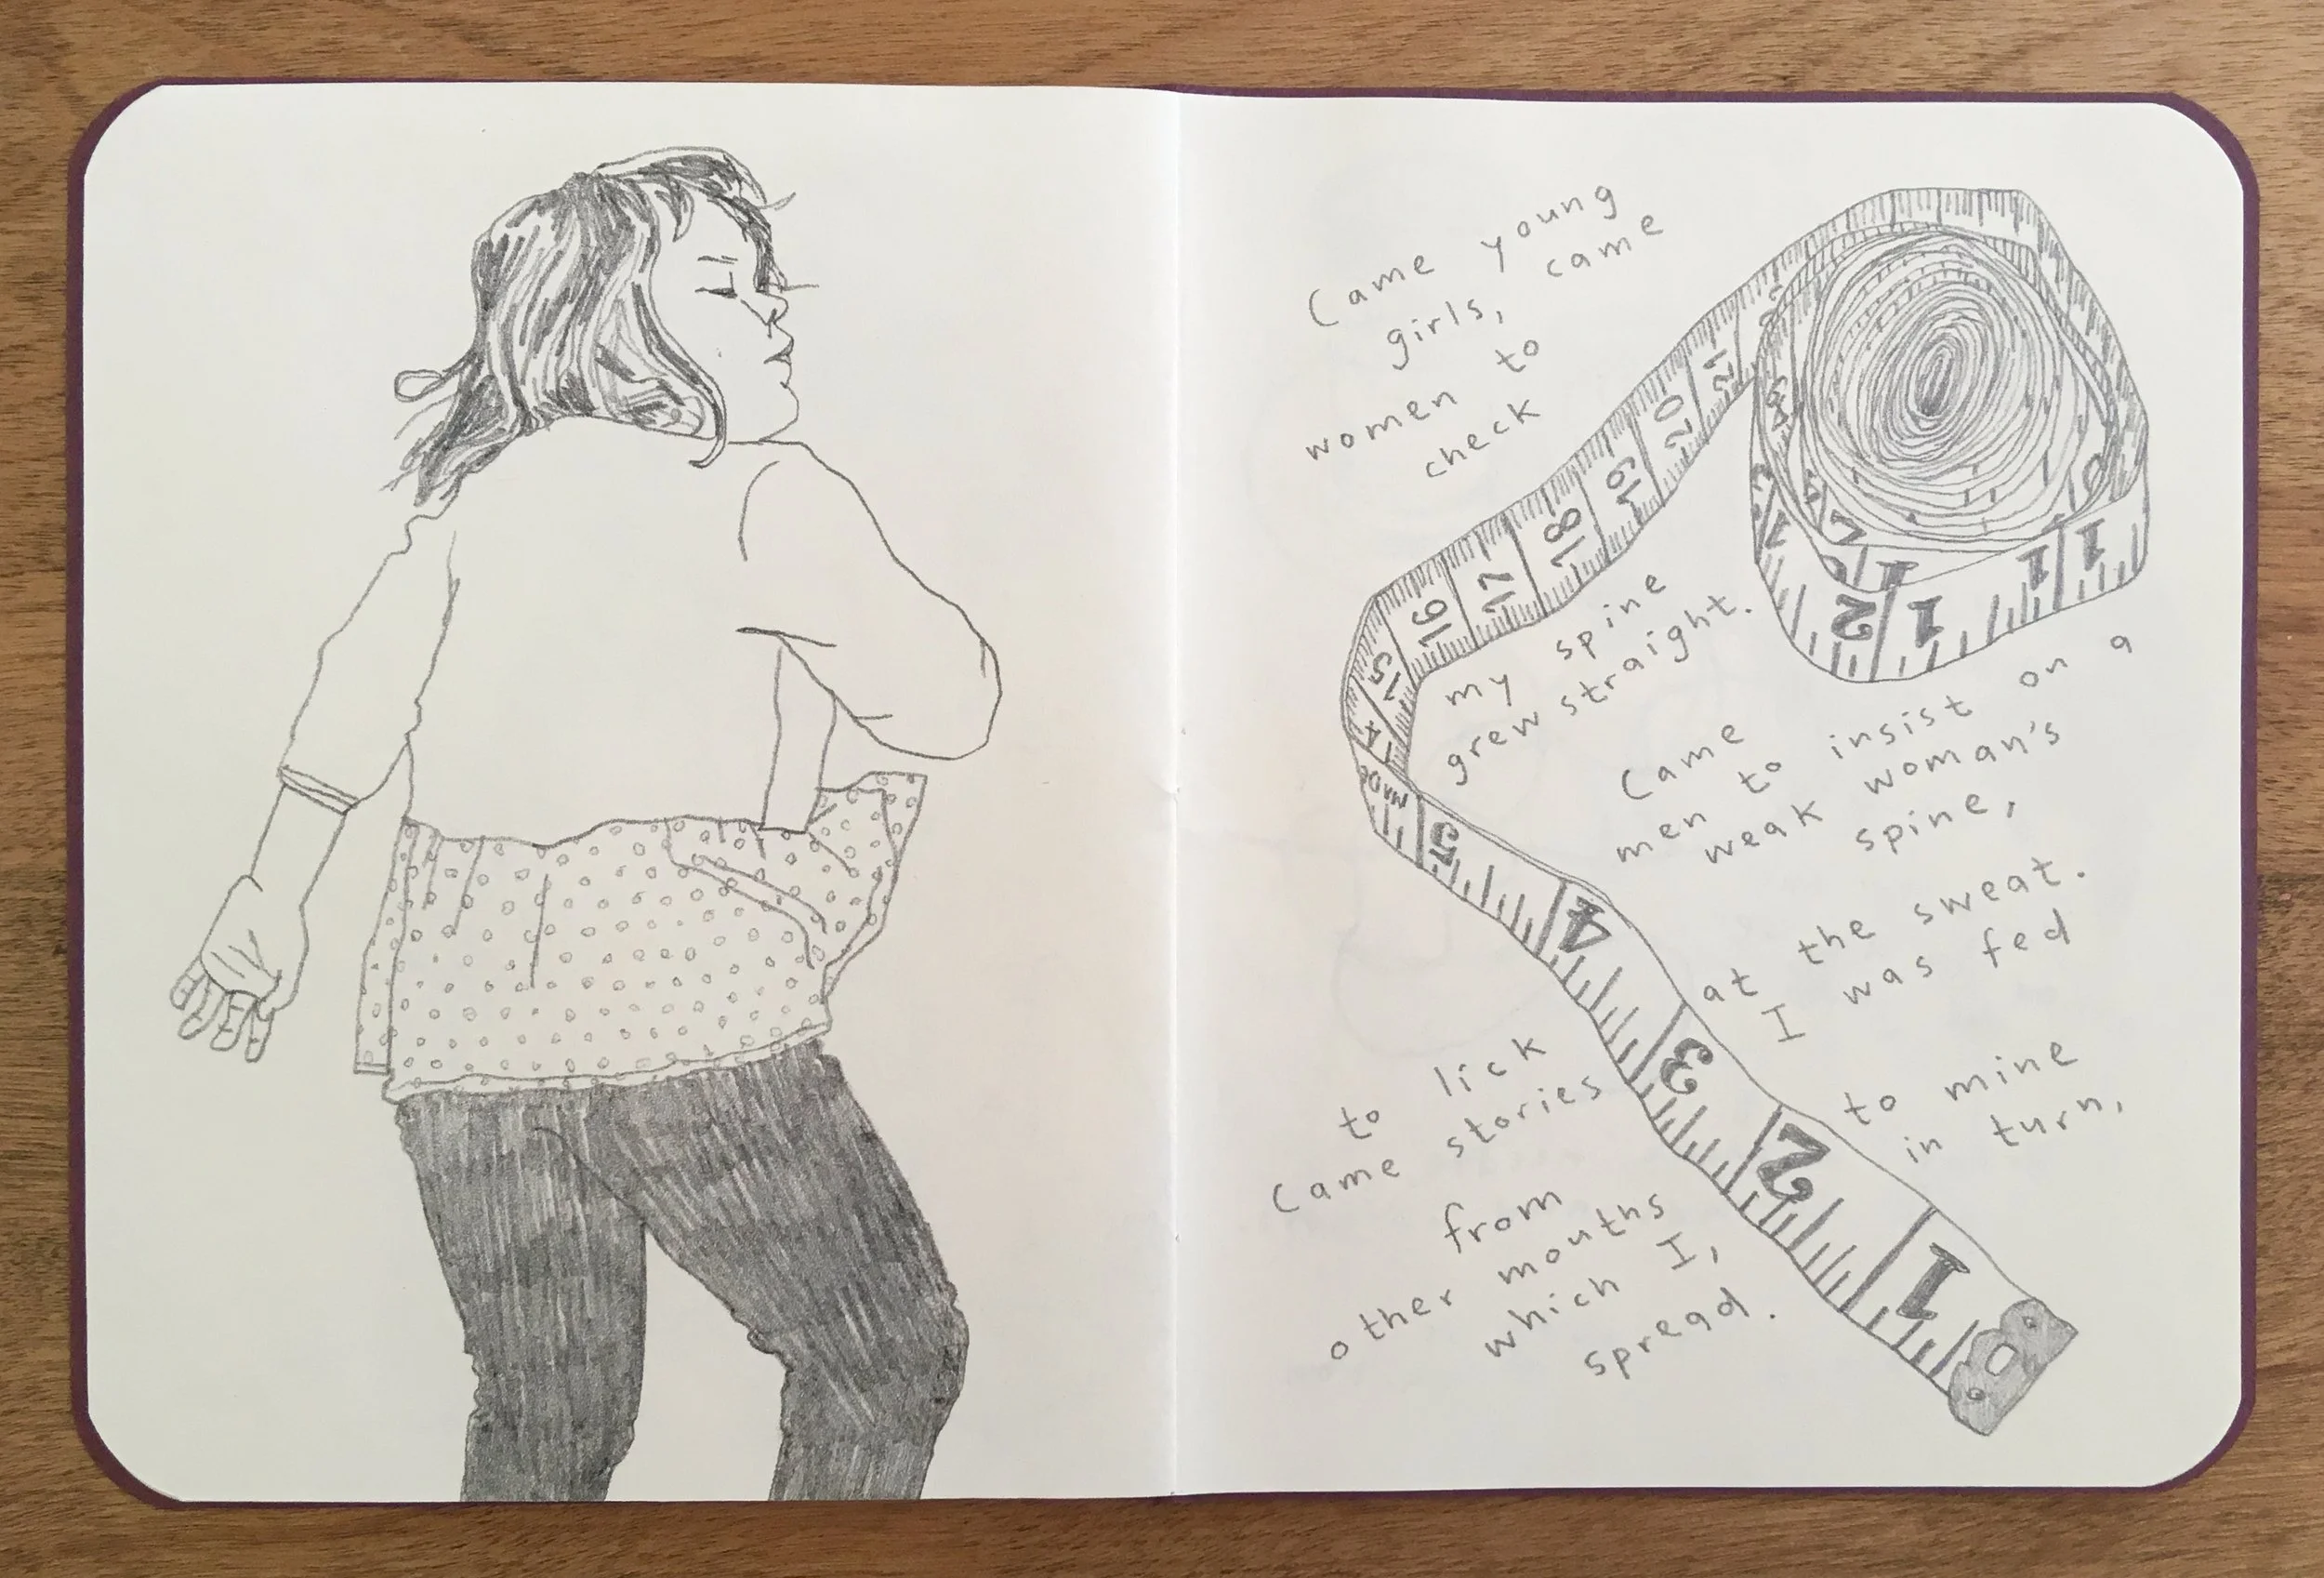 Came young
girls, came
women to
check
my spine
grew straight.
Came
men to insist on a
weak woman's
spine,
to lick
at the sweat.
I was fed
Came stories
from
other mouths
which I,
to mine
in turn,
spread.
21
20
19
18
17
16
15
14
5
4
3
2
1
1
2
1
1
1